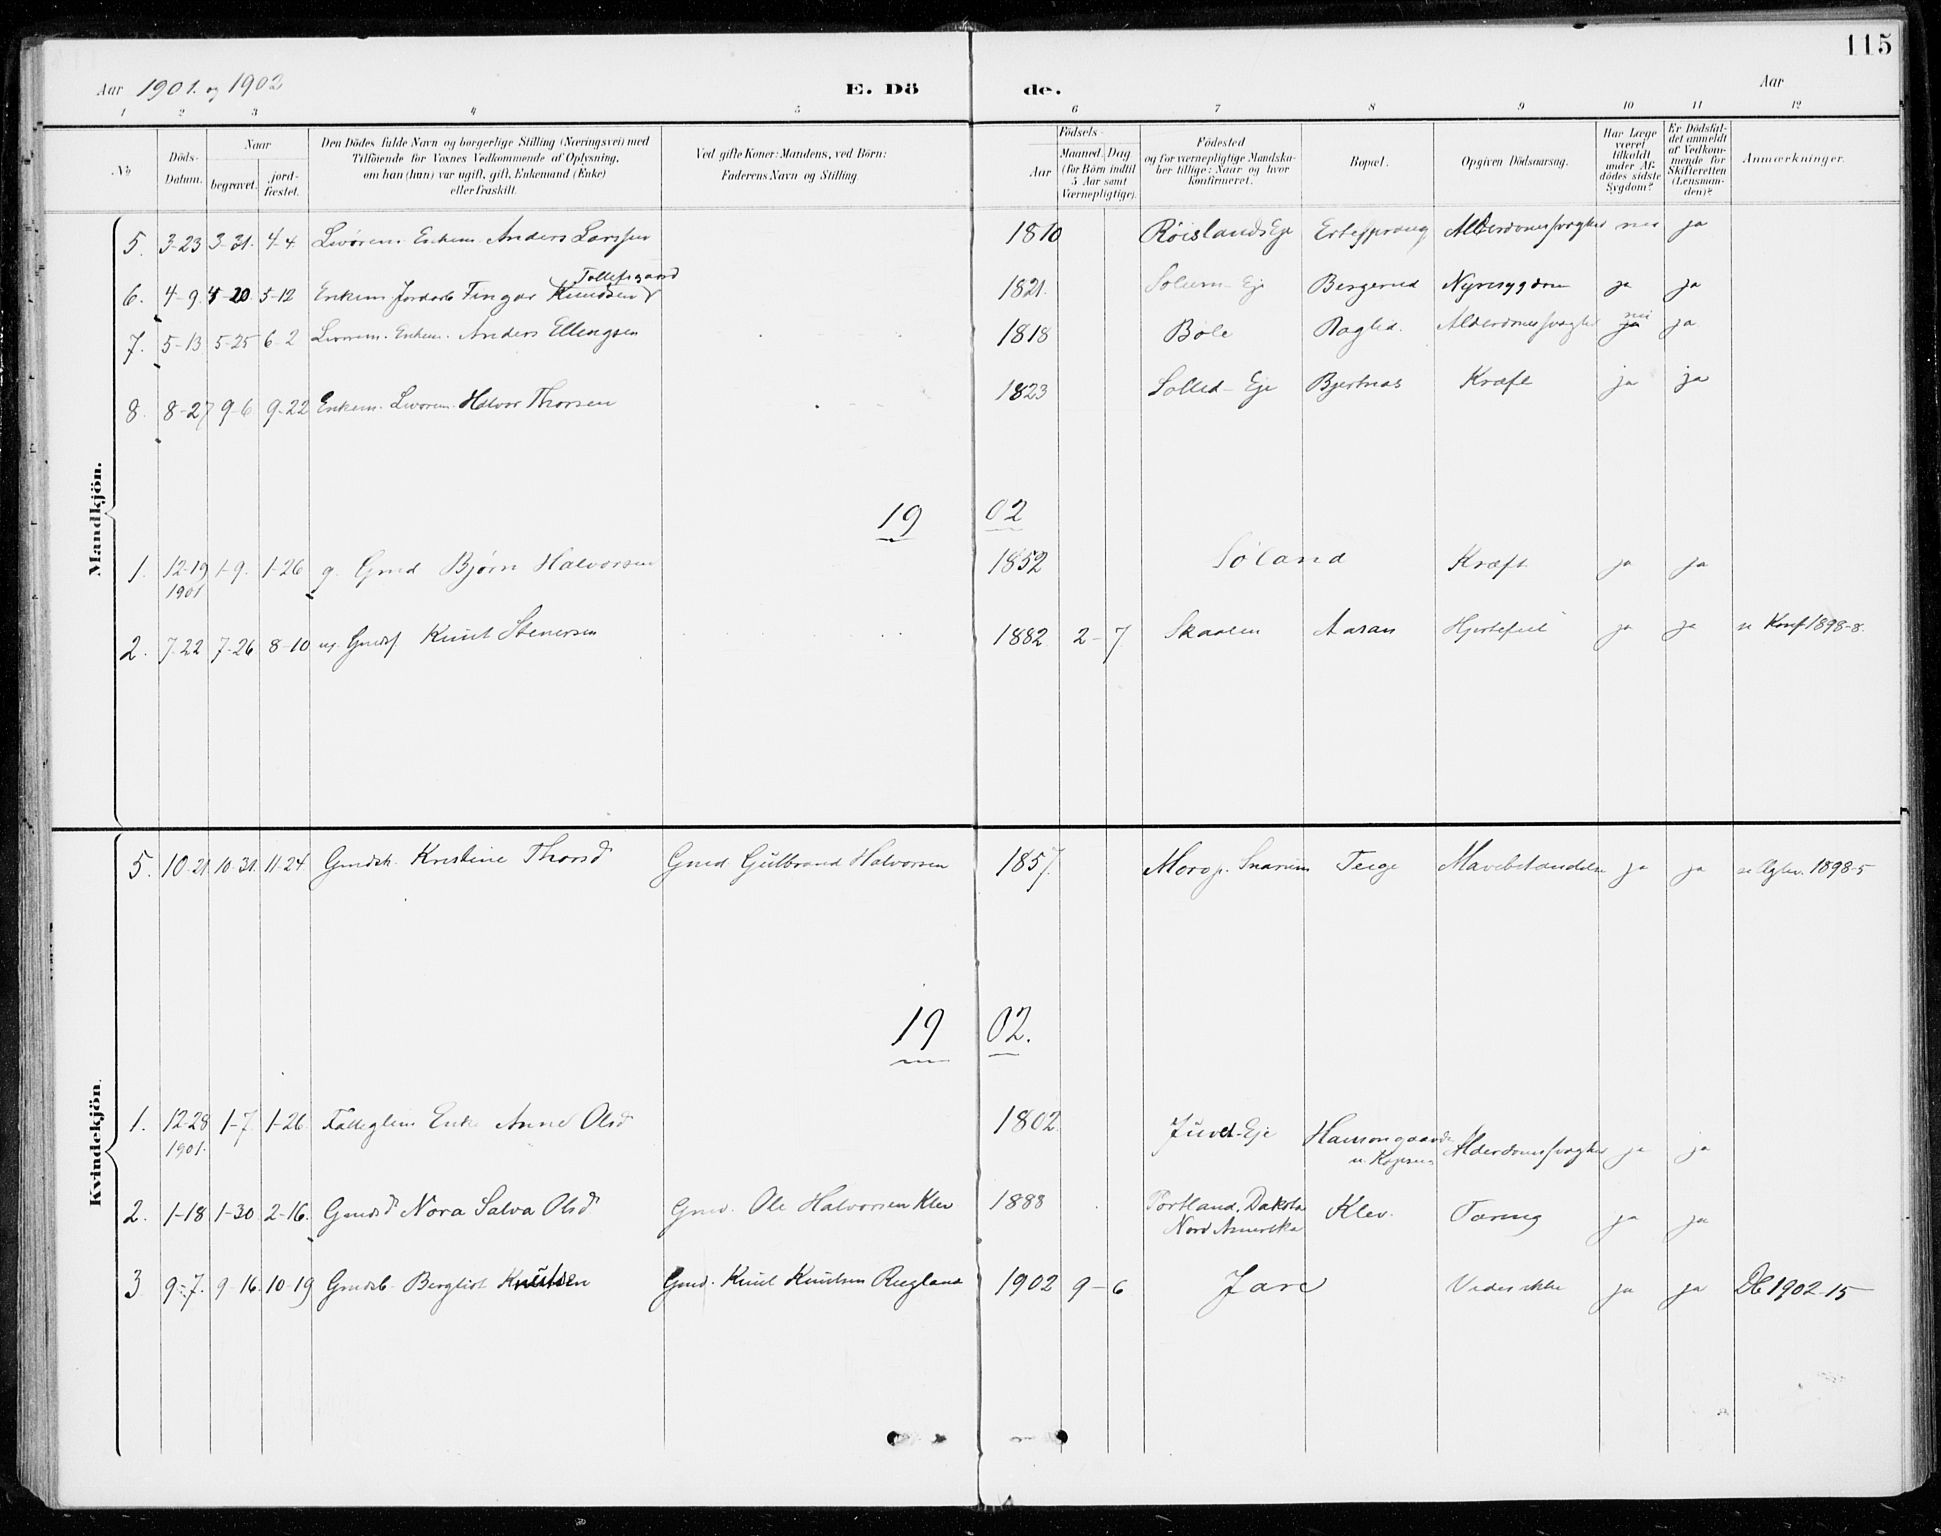 115
Aar 1901. og 1902
E. Döde.
Aar
1 2 3 4 5 6 7 8 9 10 11 12
No
Döds-Datum.
Naar
begravet.
jord-fæstet.
Den Dödes fulde Navn og borgerlige Stilling (Næringsvei) med
Tilföiende for Voxnes Vedkommende af Oplysning,
om han (hun) var ugift, gift, Enkemand (Enke)
eller fraskilt.
Ved gifte Koner: Mandens, ved Börn:
Faderens Navn og Stilling.
Födsels-
Aar
Maaned. Dag
(for Börn indtil
5 Aar samt
Værnepligtige).
Födested
og for værnepligtige Mandska-
ber tillige: Naar og hvor
konfirmeret.
Bopæl.
Opgiven Dödsaarsag.
Har Læge
været
tilkaldt
under Af-
dödes sidste
Sygdom?
Er Dödsfal-
det anmeldt
af Vedkom-
mende for
Skifteretten
(Lensman-
den)?
Anmærkninger.
Mandkjön.
5. 3-23 3-31. 4-4 Enkem. Anders Larssen 1810 Røislands Eje nei ja
Tollefsgaard
6. 4-9. 4-20 5-12 Enkem Tingar Knudsen 1821. Eje Bergerud Nyresygdom ja ja
nei
7. 5-13 5-25 6-2 Enkem. Anders Ellingsen 1818 Bøle Alderdomssvaghed ja ja
8. 8-27 9-6 9-22 Enkem. Halvor Thorsen 1823 Eje Bjertnæs Kræft ja ja
1902
1. 12-19 1-9. 1-26 g. Gmd Bjørn Halvorsen 1852 Søland Kræft ja ja
1901
2. 7-22 7-26 8-10 ug. Gmds Knut Stenersen 1882 2-7 Skaalen Aasan Hjertefeil ja ja se Konf 1898-8.
Kvindekjön.
5. 10-21. 10-31. 11-24 Gmdsk. Kristine Thorsd Gmd Gulbrand Halvorsen 1857. Moro p. Snarum Teige Mavebetændelse ja ja se Egtev. 1898-5
1902.
1. 12-28 1-7 1-26. Fattiglem Enke Anne Olsd 1802. Juvet-Eje Alderdomssvaghed ja ja
1901.
2. 1-18 1-30 2-16. Gmdsd Nora Salva Olsd Gmd. Ole Halvorsen Klev 1888 Portland, Dakota Klev. Tæring ja ja
Nord Amerika
3 9-7. 9-16. 10-19 Gmdsb. Bergliot Knutsen Gmd. Knut Knutsen Rugland 1902 9-6 Jare Vides ikke ja ja Db 1902-15